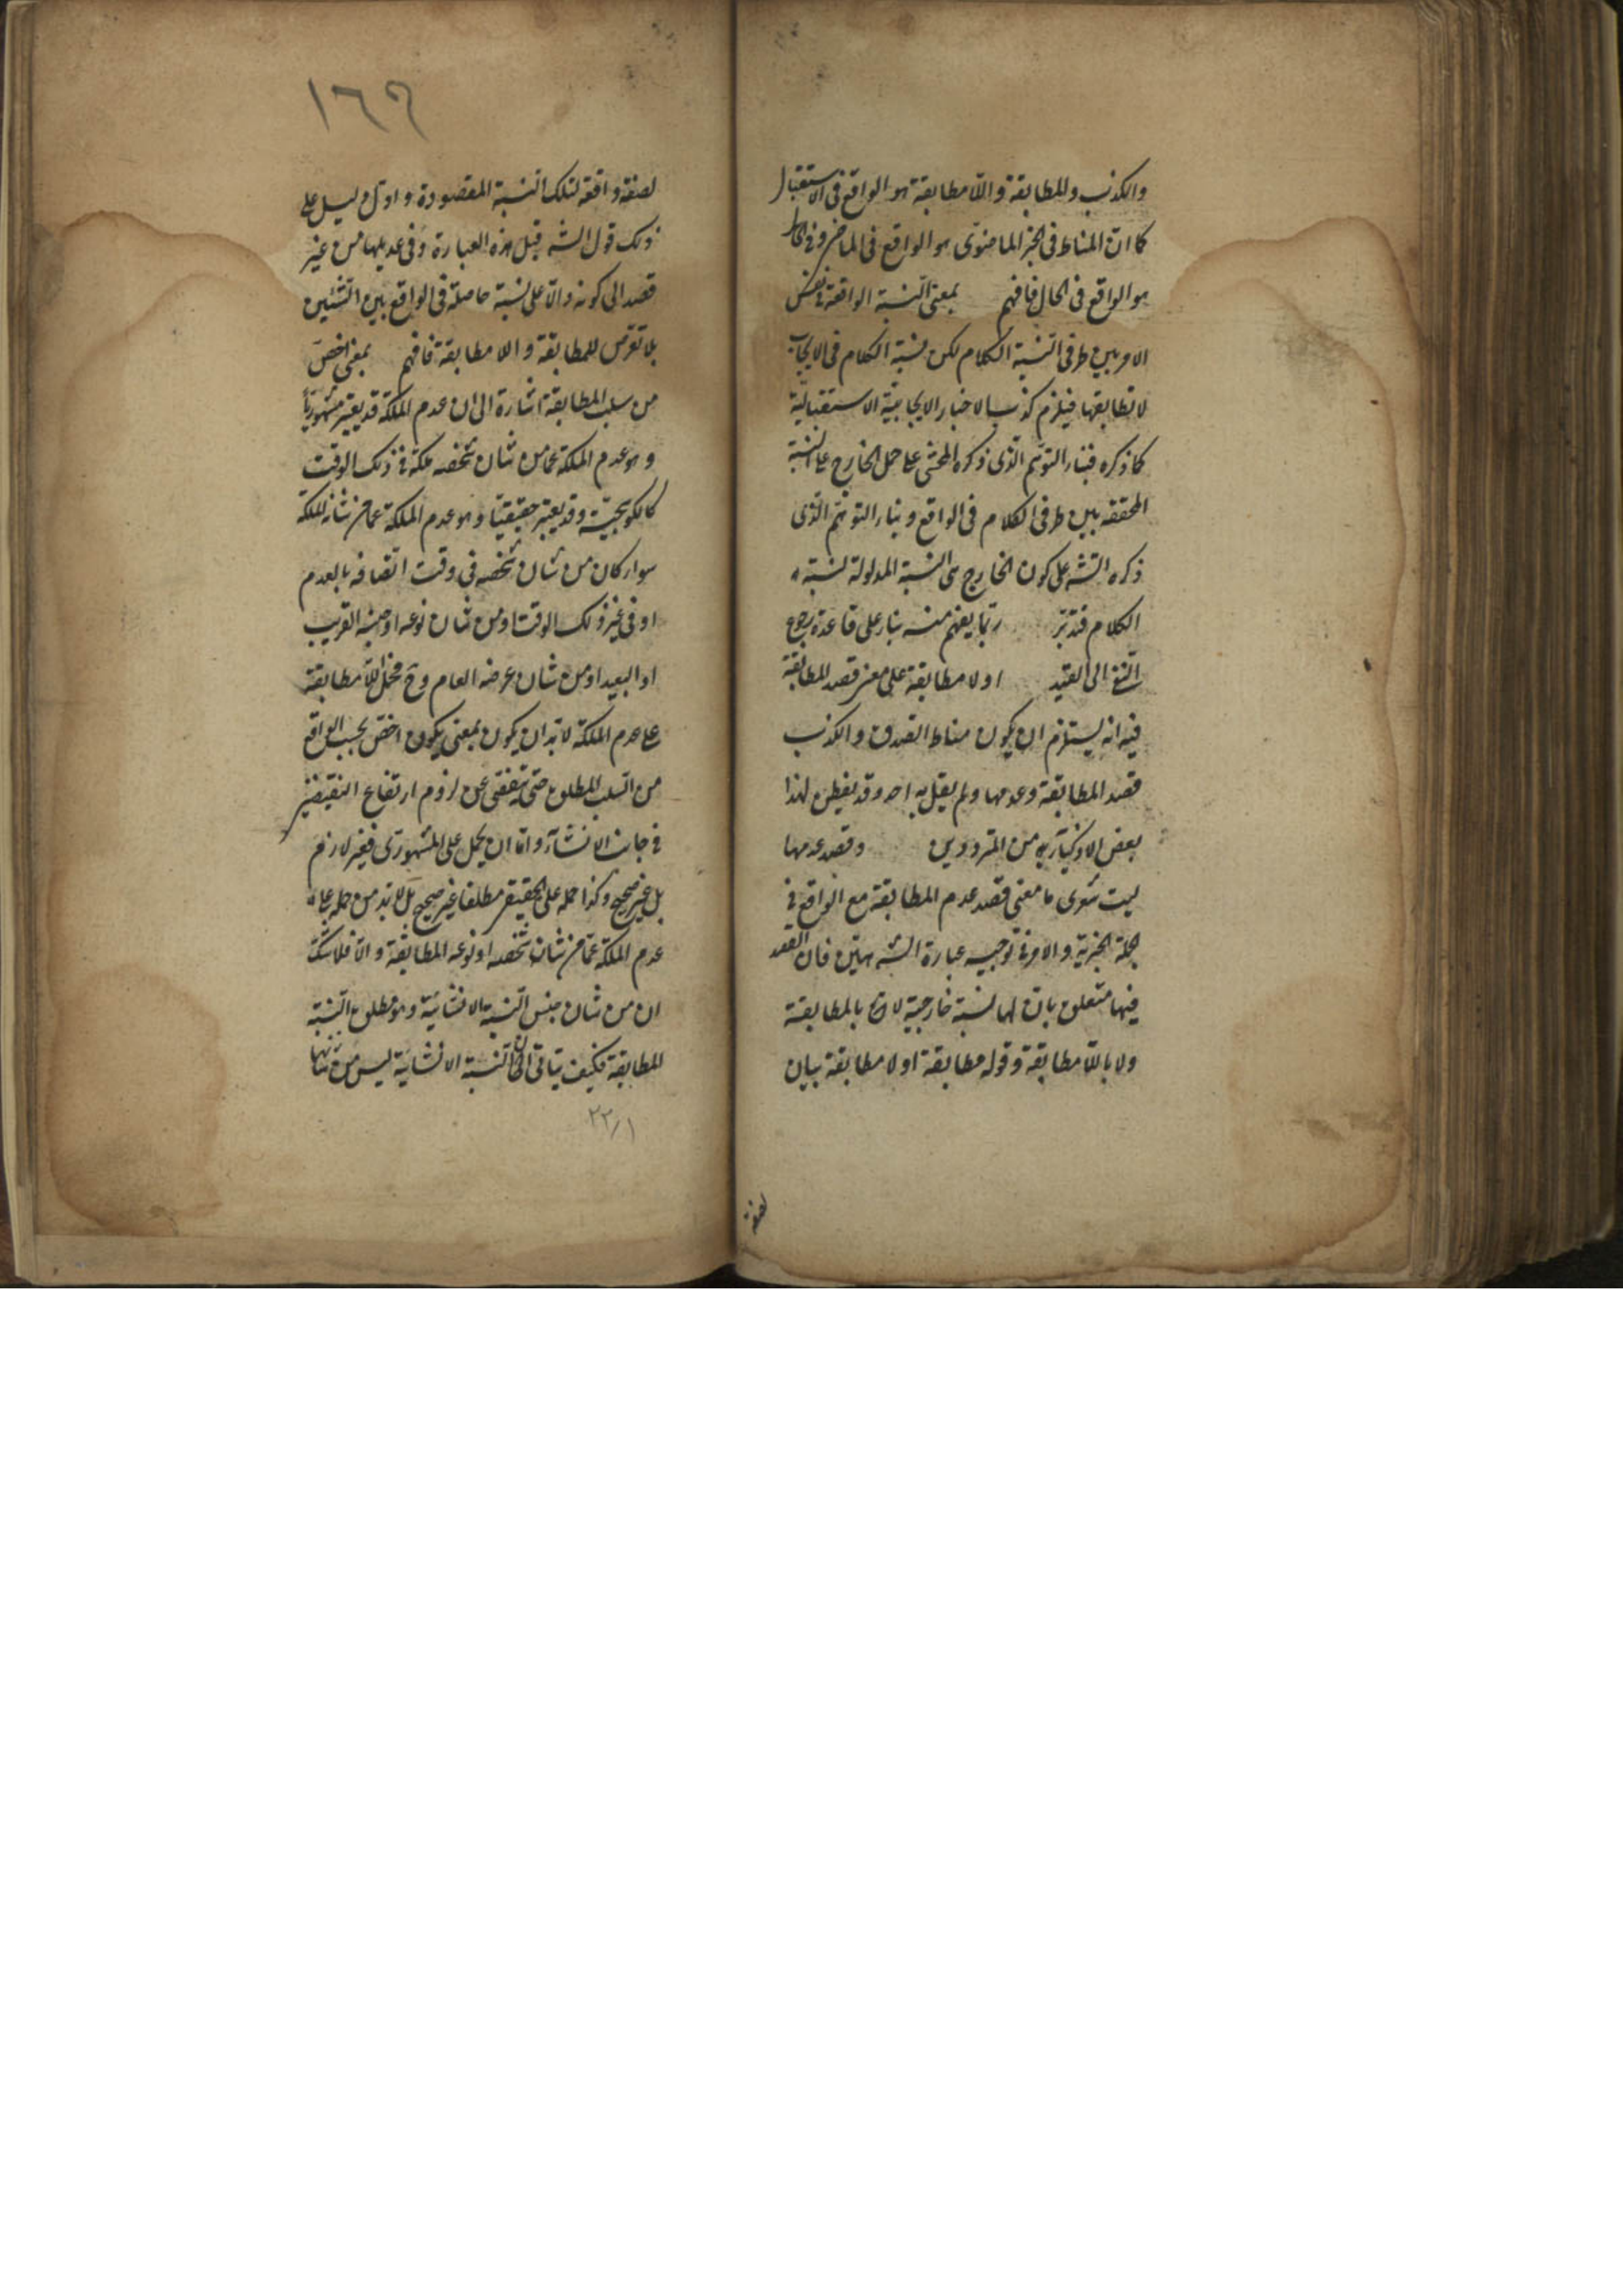 والكذب وللمطابقة واللامطابقة هو الواقع فى الاستقبال
كما ان المناط فى الخبر الماضوى هو الواقع فى الماضى وفى الحال
هو الواقع فى الحال فافهم بمعنى النسبة الواقعة فى نفس
الامر بين طرفى النسبة الكلام لكن نسبة الكلام فى الايجاب
لا تطابقها فيلزم كذب الاخبار الايجابية الاستقبالية
كما ذكره فبناء التوهم الذى ذكره المحشى على حمل الخارج على النسبة
المحققة بين طرفى الكلام فى الواقع وبناء التوهم الذى
ذكره الشه على كون الخارج عن النسبة المدلولة لنسبة
الكلام فتدبر ربما يفهم منه بناء على قاعدة رجوع
النفى الى القيد اولا مطابقة على معنى قصد المطابقة
فيه انه يستلزم ان يكون مناط الصدق والكذب
قصد المطابقة وعدمها ولم يقل به احد وقد يفطن لهذا
بعض الاذكياء من المترددين وقصد عدمها
ليت شعرى ما معنى قصد عدم المطابقة مع الواقع فى
الجملة الخبرية والامر فى توجيه عبارة الشه هين فان القصد
فيها متعلق بان لها نسبة خارجية لا بالمطابقة
ولا باللا مطابقة وقوله مطابقة اولا مطابقة بيان
لصفة
١٦٩
لصفة واقعة لتلك النسبة المقصودة واول دليل على
ذلك قول الشه قبل هذه العبارة وفى عديلها من غير
قصد الى كونه دالا على نسبة حاصلة فى الواقع بين الشيئين
بلا تعرض للمطابقة واللا مطابقة فافهم بمعنى اخص
من سلب المطابقة اشارة الى ان عدم الملكة قد يعتبر مشهوريا
وهو عدم الملكة عما من شان شخصه ملكة فى ذلك الوقت
كالكوسجية وقد يعتبر حقيقيا وهو عدم الملكة عما من شانه الملكة
سواء كان من شان شخصه فى وقت اتصافه بالعدم
او فى غير ذلك الوقت او من شان نوعه او جنسه القريب
او البعيد او من شان عرضه العام وح فحمل اللا مطابقة
على عدم الملكة لا بد ان يكون بمعنى يكون اخص بحسب الواقع
من السلب المطلق حتى يتفصى عن لزوم ارتفاع النقيضين
فى جانب الانشاء واما ان يحمل على المشهورى فغير لازم
بل غير صحيح وكذا حمله على الحقيقى مطلقا غير صحيح بل لا بد من حمله على
عدم الملكة عما من شان شخصه او نوعه المطابقة والا فلا شك
ان من شان جنس النسبة الانشائية وهو مطلق النسبة
المطابقة فكيف يتاتى ان النسبة الانشائية ليس من شانها
٢٢/١